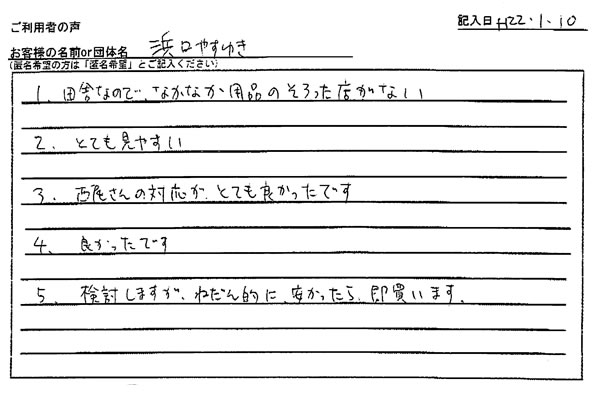 ご利用者の声
記入日 H22.1.10
お客様の名前or団体名 浜口やすゆき
(匿名希望の方は「匿名希望」とご記入ください)
1、田舎なので、なかなか用品のそろった店がない
2、とても見やすい
3、西尾さんの対応が、とても良かったです
4、良かったです
5、検討しますが、ねだん的に、安かったら、即買います。